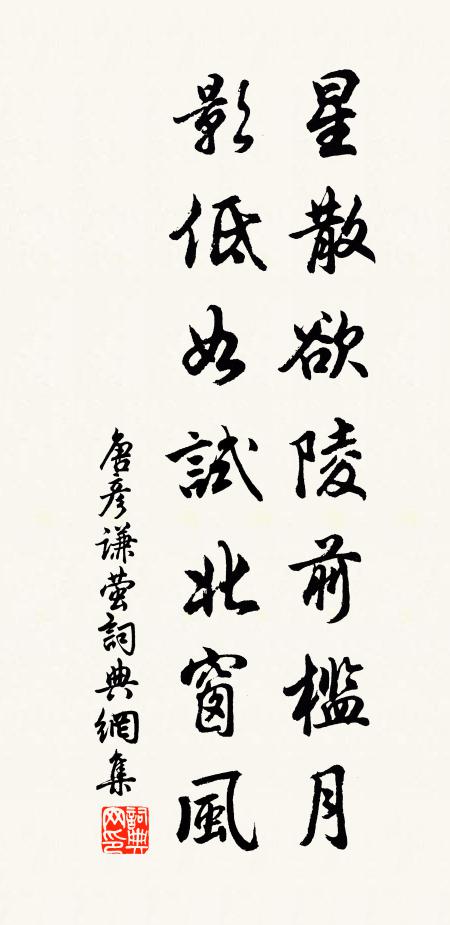 星散欲陵前槛月
影低如試北窗風
唐彥謙萤詞典網集
詞典网印